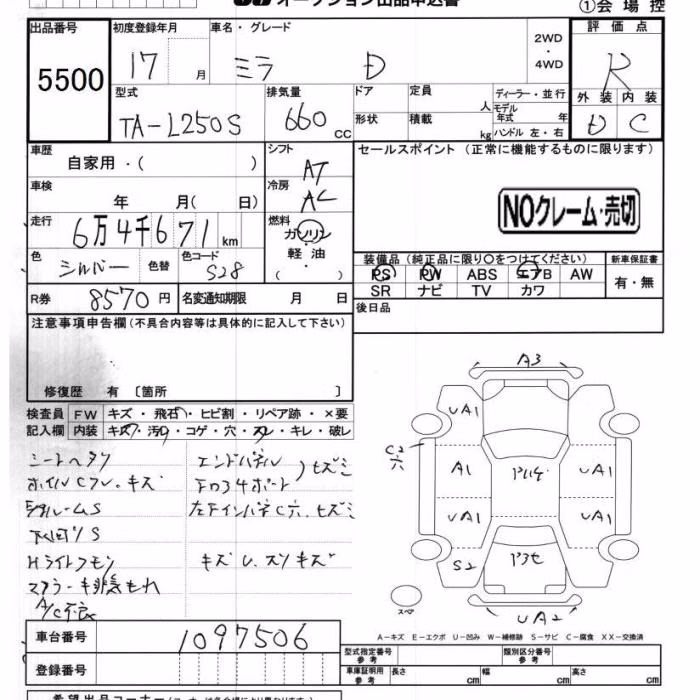 オークション出品申込書
①会場控
出品番号
5500
初度登録年月
17 月
車名・グレード
ミラ D
2WD
・
4WD
評価点
R
外装 内装
D C
型式
TA-L250S
排気量
660 cc
ドア
形状
定員 人
積載 kg
ディーラー・並行
モデル年式 年
ハンドル 左・右
車歴
自家用・( )
シフト
AT
車検
年 月( 日)
冷房
AC
走行
6万4千671 km
燃料
ガソリン
・
軽油
・
( )
色
シルバー
色替
色コード
S28
R券 8570円
名変通知期限 月 日
セールスポイント (正常に機能するものに限ります)
NOクレーム・売切
装備品(純正品に限り○をつけてください)
PS PW ABS エアB AW
SR ナビ TV カワ
新車保証書
有・無
後日品
注意事項申告欄(不具合内容等は具体的に記入して下さい)
修復歴 有 〔箇所 〕
検査員 FW キズ・飛石・ヒビ割・リペア跡・×要
記入欄 内装 キズ・汚れ・コゲ・穴・スレ・キレ・破レ
シートヘタリ
ホイルCフレ・キズ
S
Hライトクモリ
マフラー 排気もれ
A/C不良
エンドパネル
キズ U. スリキズ
A3
UA1
C2
六
A1
UA1
UA1
UA1
S2
スペア
UA2
A-キズ E-エクボ U-凹み W-補修跡 S-サビ C-腐食 XX-交換済
車台番号 1097506
登録番号
型式指定番号 参考
類別区分番号 参考
車庫証明用 参考 長さ cm 幅 cm 高さ cm
希望出品コーナー